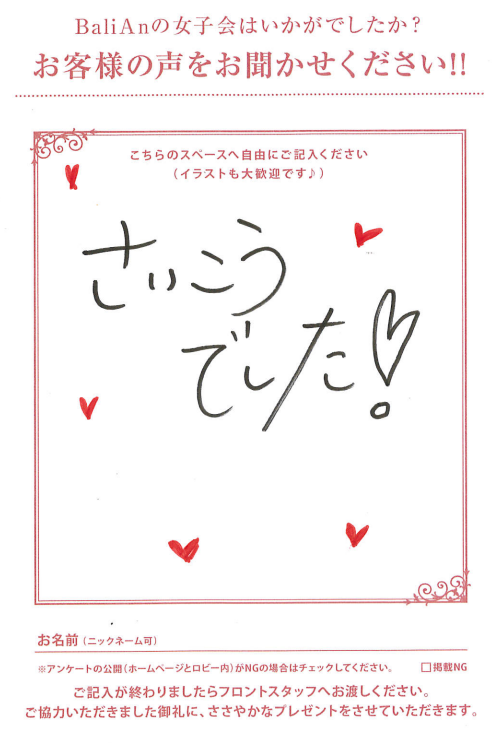 BaliAnの女子会はいかがでしたか？
お客様の声をお聞かせください!!
こちらのスペースへ自由にご記入ください
（イラストも大歓迎です♪）
さいこう
でした!
お名前（ニックネーム可）
※アンケートの公開（ホームページとロビー内）がNGの場合はチェックしてください。 □掲載NG
ご記入が終わりましたらフロントスタッフへお渡しください。
ご協力いただきました御礼に、ささやかなプレゼントをさせていただきます。